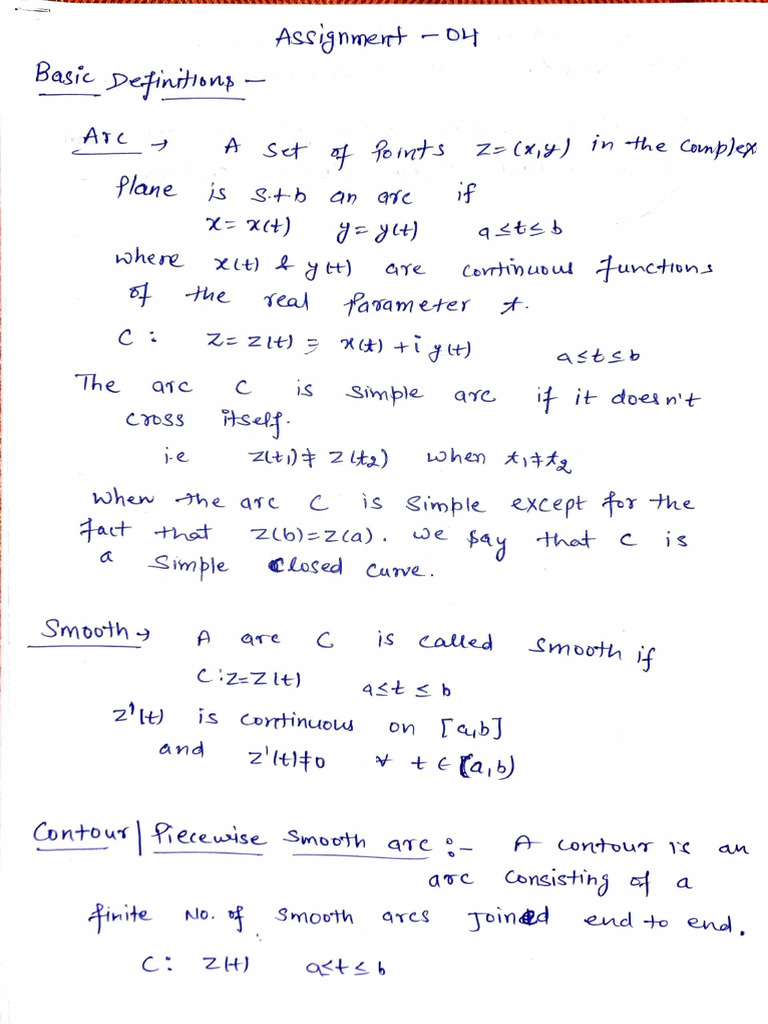 Assignment - 04
Basic Definitions -
Arc → A set of points z=(x,y) in the complex
plane is s.t.b an arc if
x = x(t) y = y(t) a≤t≤b
where x(t) & y(t) are continuous functions
of the real parameter t.
C : z = z(t) = x(t) + i y(t) a≤t≤b
The arc C is simple arc if it doesn't
cross itself.
i.e z(t₁) ≠ z(t₂) when t₁≠t₂
When the arc C is simple except for the
fact that z(b)=z(a). we say that C is
a simple closed curve.
Smooth → A arc C is called smooth if
C:z=z(t) a≤t≤b
z'(t) is continuous on [a,b]
and z'(t)≠0 ∀ t ∈ (a,b)
Contour | Piecewise smooth arc :- A contour is an
arc consisting of a
finite No. of smooth arcs joined end to end.
C : z(t) a≤t≤b